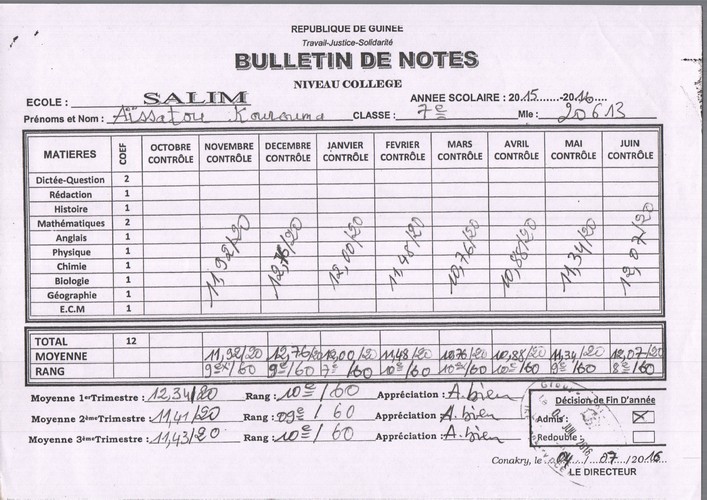 REPUBLIQUE DE GUINEE
Travail-Justice-Solidarité
BULLETIN DE NOTES
NIVEAU COLLEGE
ECOLE : SALIM ANNEE SCOLAIRE : 2015......-2016.....
Prénoms et Nom : Aïssatou Kourouma CLASSE : 7e Mle : 20613
MATIERES COEF OCTOBRE CONTRÔLE NOVEMBRE CONTRÔLE DECEMBRE CONTRÔLE JANVIER CONTRÔLE FEVRIER CONTRÔLE MARS CONTRÔLE AVRIL CONTRÔLE MAI CONTRÔLE JUIN CONTRÔLE
Dictée-Question 2
Rédaction 1
Histoire 1
Mathématiques 2
Anglais 1
Physique 1
Chimie 1
Biologie 1
Géographie 1
E.C.M 1
11,92/20 12,76/20 12,00/20 11,48/20 10,76/20 10,88/20 11,34/20 12,07/20
TOTAL 12
MOYENNE 11,92/20 12,76/20 12,00/20 11,48/20 10,76/20 10,88/20 11,34/20 12,07/20
RANG 9ex/60 9e/60 7e/60 10e/60 10ex/60 10e/60 9e/60 8e/60
Moyenne 1erTrimestre : 12,34/20 Rang : 10e/60 Appréciation : A.bien
Moyenne 2èmeTrimestre : 11,41/20 Rang : 09e/60 Appréciation : A.bien
Moyenne 3èmeTrimestre : 11,43/20 Rang : 10e/60 Appréciation : A.bien
Décision de Fin D'année
Admis :
Redouble :
Conakry, le 04/07/2016
LE DIRECTEUR